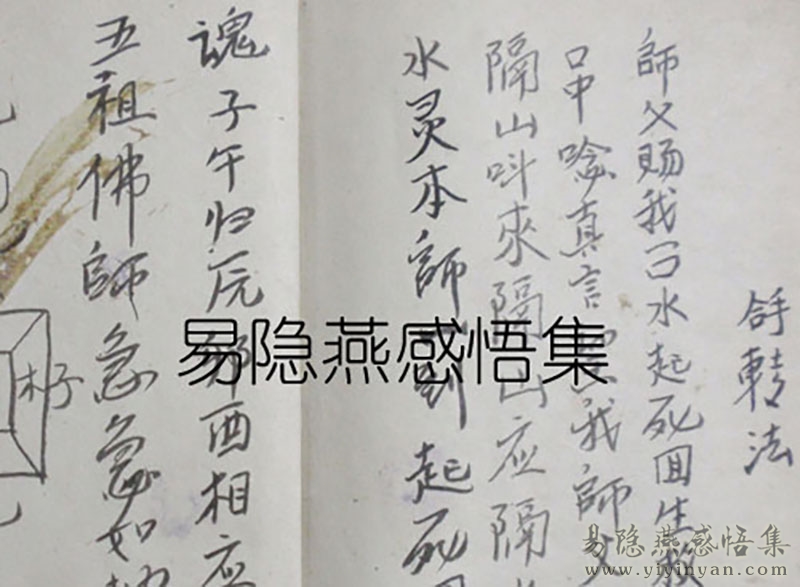 舒轉法
師父賜我口水起死回生
口中唸真言
我師父
隔山叫來隔山应隔
水灵本師到起死回
魂子午归元卯酉相应
五祖佛師急急如
木子
易隐燕感悟集
易隐燕感悟集
www.yiyinyan.com